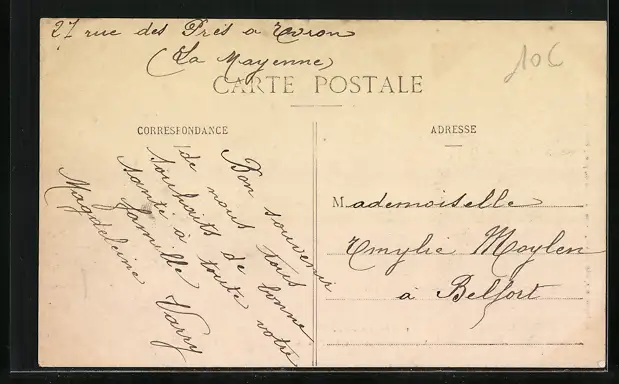 27 rue des Prés a Evron
(La Mayenne)
10€
CARTE POSTALE
CORRESPONDANCE
ADRESSE
Bon souvenir
de nous tous
souhaits de bonne
santé à toute votre
famille
Magdeleine Varry
Mademoiselle
Emylie Moylen
à Belfort